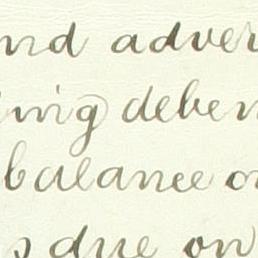 and adver
ing deben
balance o
s due on